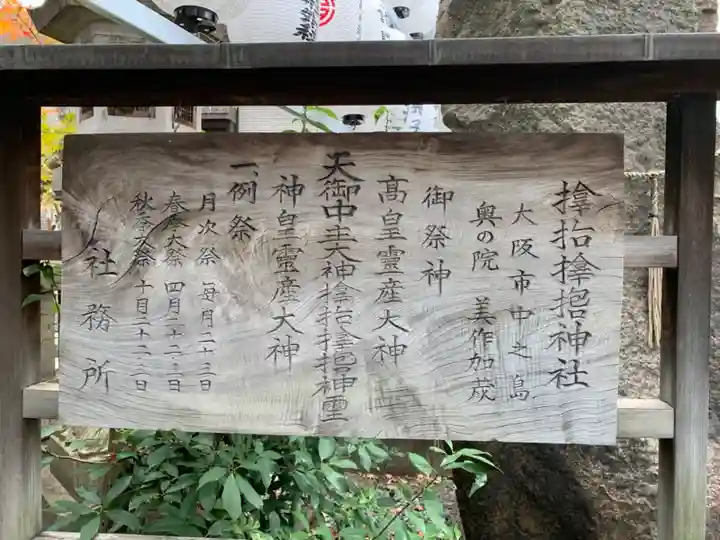 神社
大阪市中之島
奥の院 美作加茂
御祭神
高皇靈産大神
天御中主大神 神霊
神皇靈産大神
一、例祭
月次祭 毎月二十三日
春季大祭 四月二十二・三日
秋季大祭 十月二十二・三日
社務所